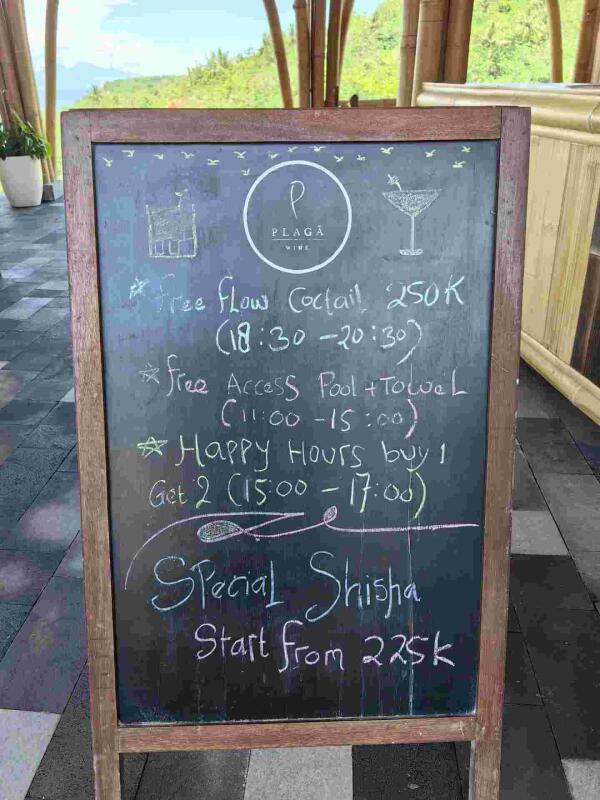 P
PLAGĂ
WINE
free flow Coctail 250K
(18:30 - 20:30)
free Access Pool + Towel
(11:00 - 15:00)
Happy Hours buy 1
Get 2 (15:00 - 17:00)
Special Shisha
Start from 225k